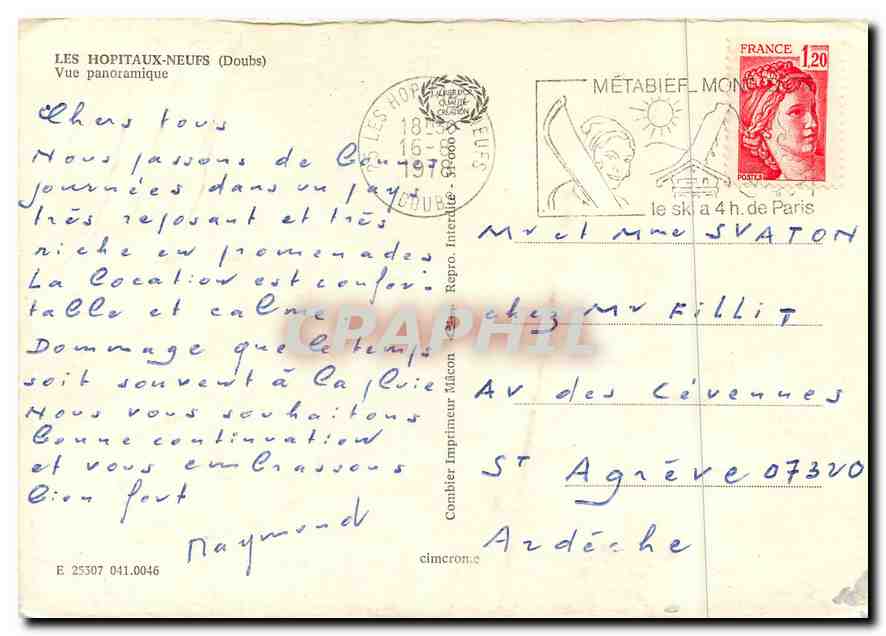 LES HOPITAUX-NEUFS (Doubs)
Vue panoramique
Chers tous
Nous passons de bonnes
journées dans un pays
très reposant et très
riche en promenades
La location est confor-
table et calme
Dommage que le temps
soit souvent à la pluie
Nous vous souhaitons
bonne continuation
et vous embrassons
bien fort
Raymond
E 25307 041.0046
cimcrome
Combier Imprimeur Mâcon
Repro. Interdite - 51000
25 LES HOPITAUX NEUFS
16-8
1978
DOUBS
QUALITÉ
CRÉATION
MÉTABIEF_MONT
le ski a 4 h. de Paris
FRANCE 1,20
POSTES
Mr et Mme SVATON
chez Mr FILLIT
Av des Cévennes
ST Agrève 07320
Ardèche
CPAPHIL